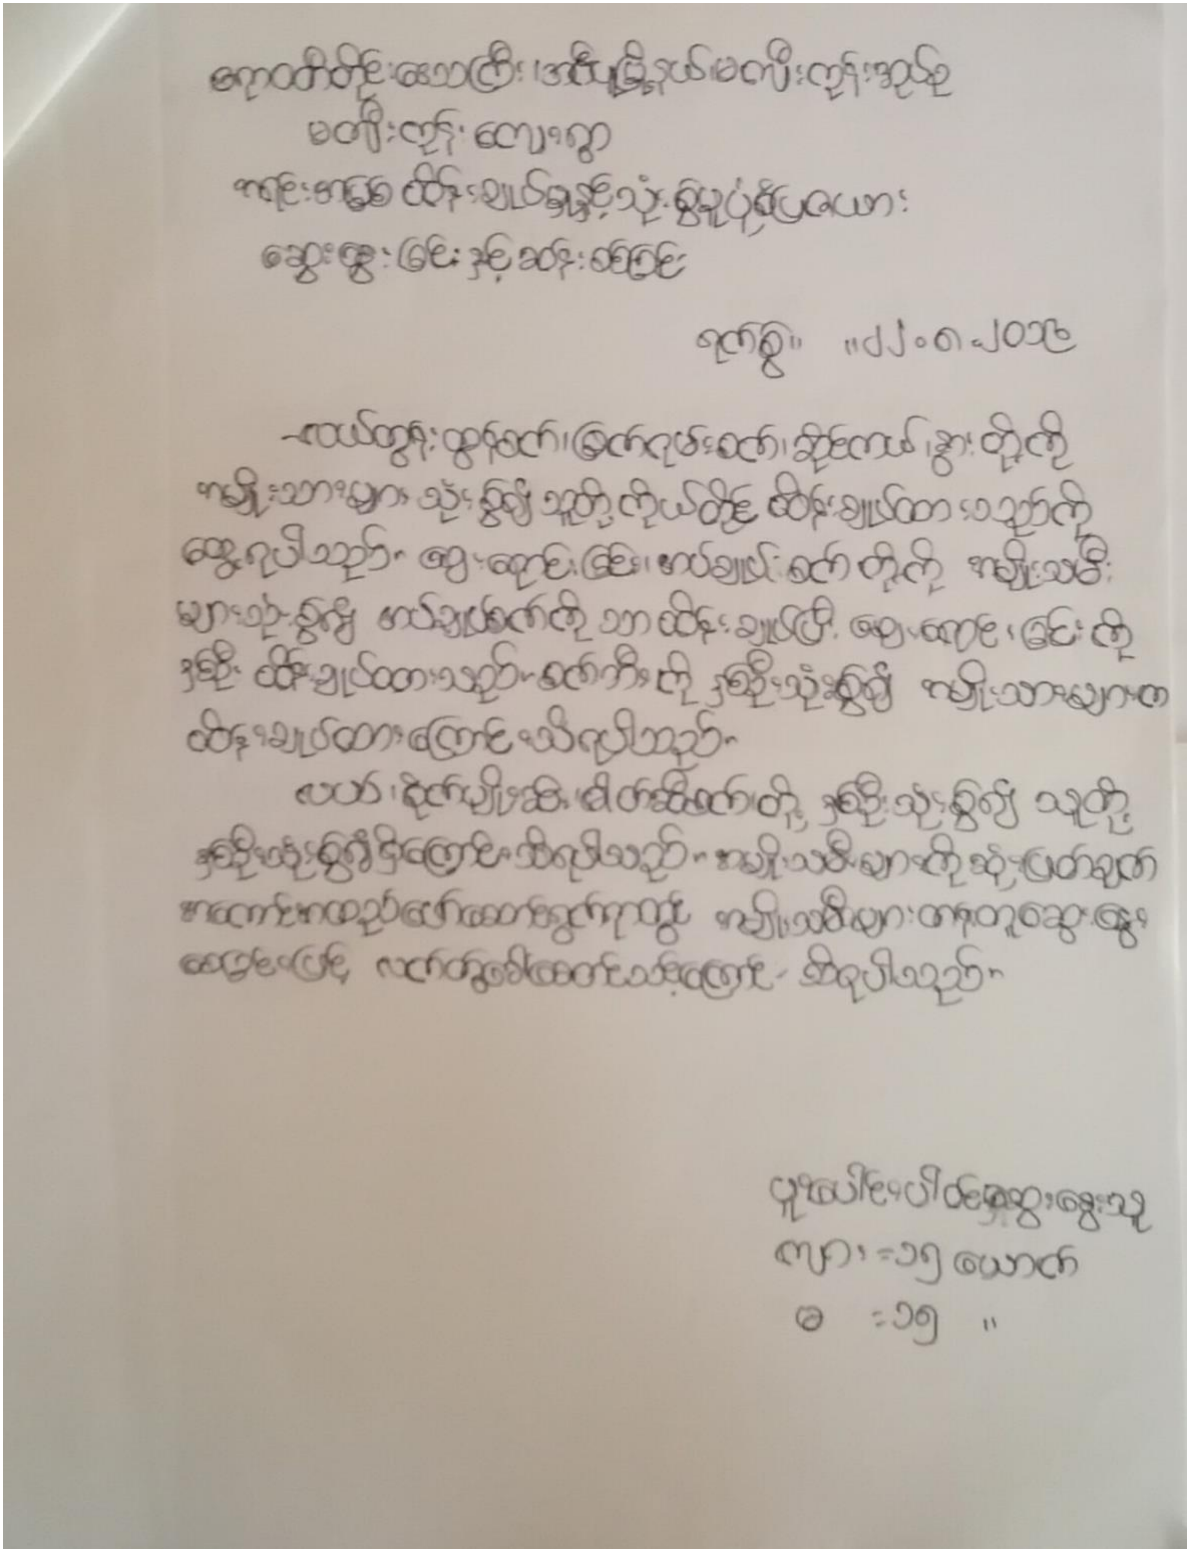 ဧရာဝတီတိုင်းဒေသကြီး၊ အင်္ဂပူမြို့နယ်၊ မကျီးကုန်းအုပ်စု
မကျီးကုန်း ကျေးရွာ
အရင်းအမြစ် ထိန်းချုပ်မှုနှင့်သုံးစွဲမှုပုံစံပြဇယား
ဆွေးနွေးခြင်းနှင့်ဆန်းစစ်ခြင်း
ရက်စွဲ။ ။၂၂.၈.၂၀၁၆
လယ်ထွန်းထွန်စက်၊ မြက်ဂုမ်းစက်၊ ဆိုင်ကယ်၊ နွား တို့ကို
အမျိုးသားများ သုံးစွဲ၍ သူတို့ကိုယ်တိုင် ထိန်းချုပ်ထားသည်ကို
တွေ့ရပါသည်။ မွေးထောင်းခြင်း၊ အပ်ချုပ်စက် တို့ကို အမျိုးသမီး
များသုံးစွဲ၍ အပ်ချုပ်စက်ကို သာ ထိန်းချုပ်ပြီး မွေးထောင်းခြင်းကို
နှစ်ဦး ထိန်းချုပ်ထားသည်။ စက်ဘီးကို နှစ်ဦးသုံးစွဲ၍ အမျိုးသားများက
ထိန်းချုပ်ထားကြောင်းသိရပါသည်။
လယ်၊ စိုက်ပျိုးဆေး၊ ဓါတ်ဆီစက်၊ တို့ နှစ်ဦးသုံးစွဲ၍ သူတို့
နှစ်ဦးသုံးစွဲ၍ရှိကြောင်းသိရပါသည်။ အမျိုးသမီးများကို ဆုံးဖြတ်ချက်
အကောင်အထည်ဖော်ဆောင်ရွက်ရာတွင် အမျိုးသမီးများ တန်းတူဆွေးနွေး
စေခြင်းဖြင့် လက်တွဲခေါ်ဆောင်သင့်ကြောင်း သိရပါသည်။
ပူးပေါင်းပါဝင်ဆွေးနွေးသူ
ကျား = ၁၅ ယောက်
မ = ၁၅ ။